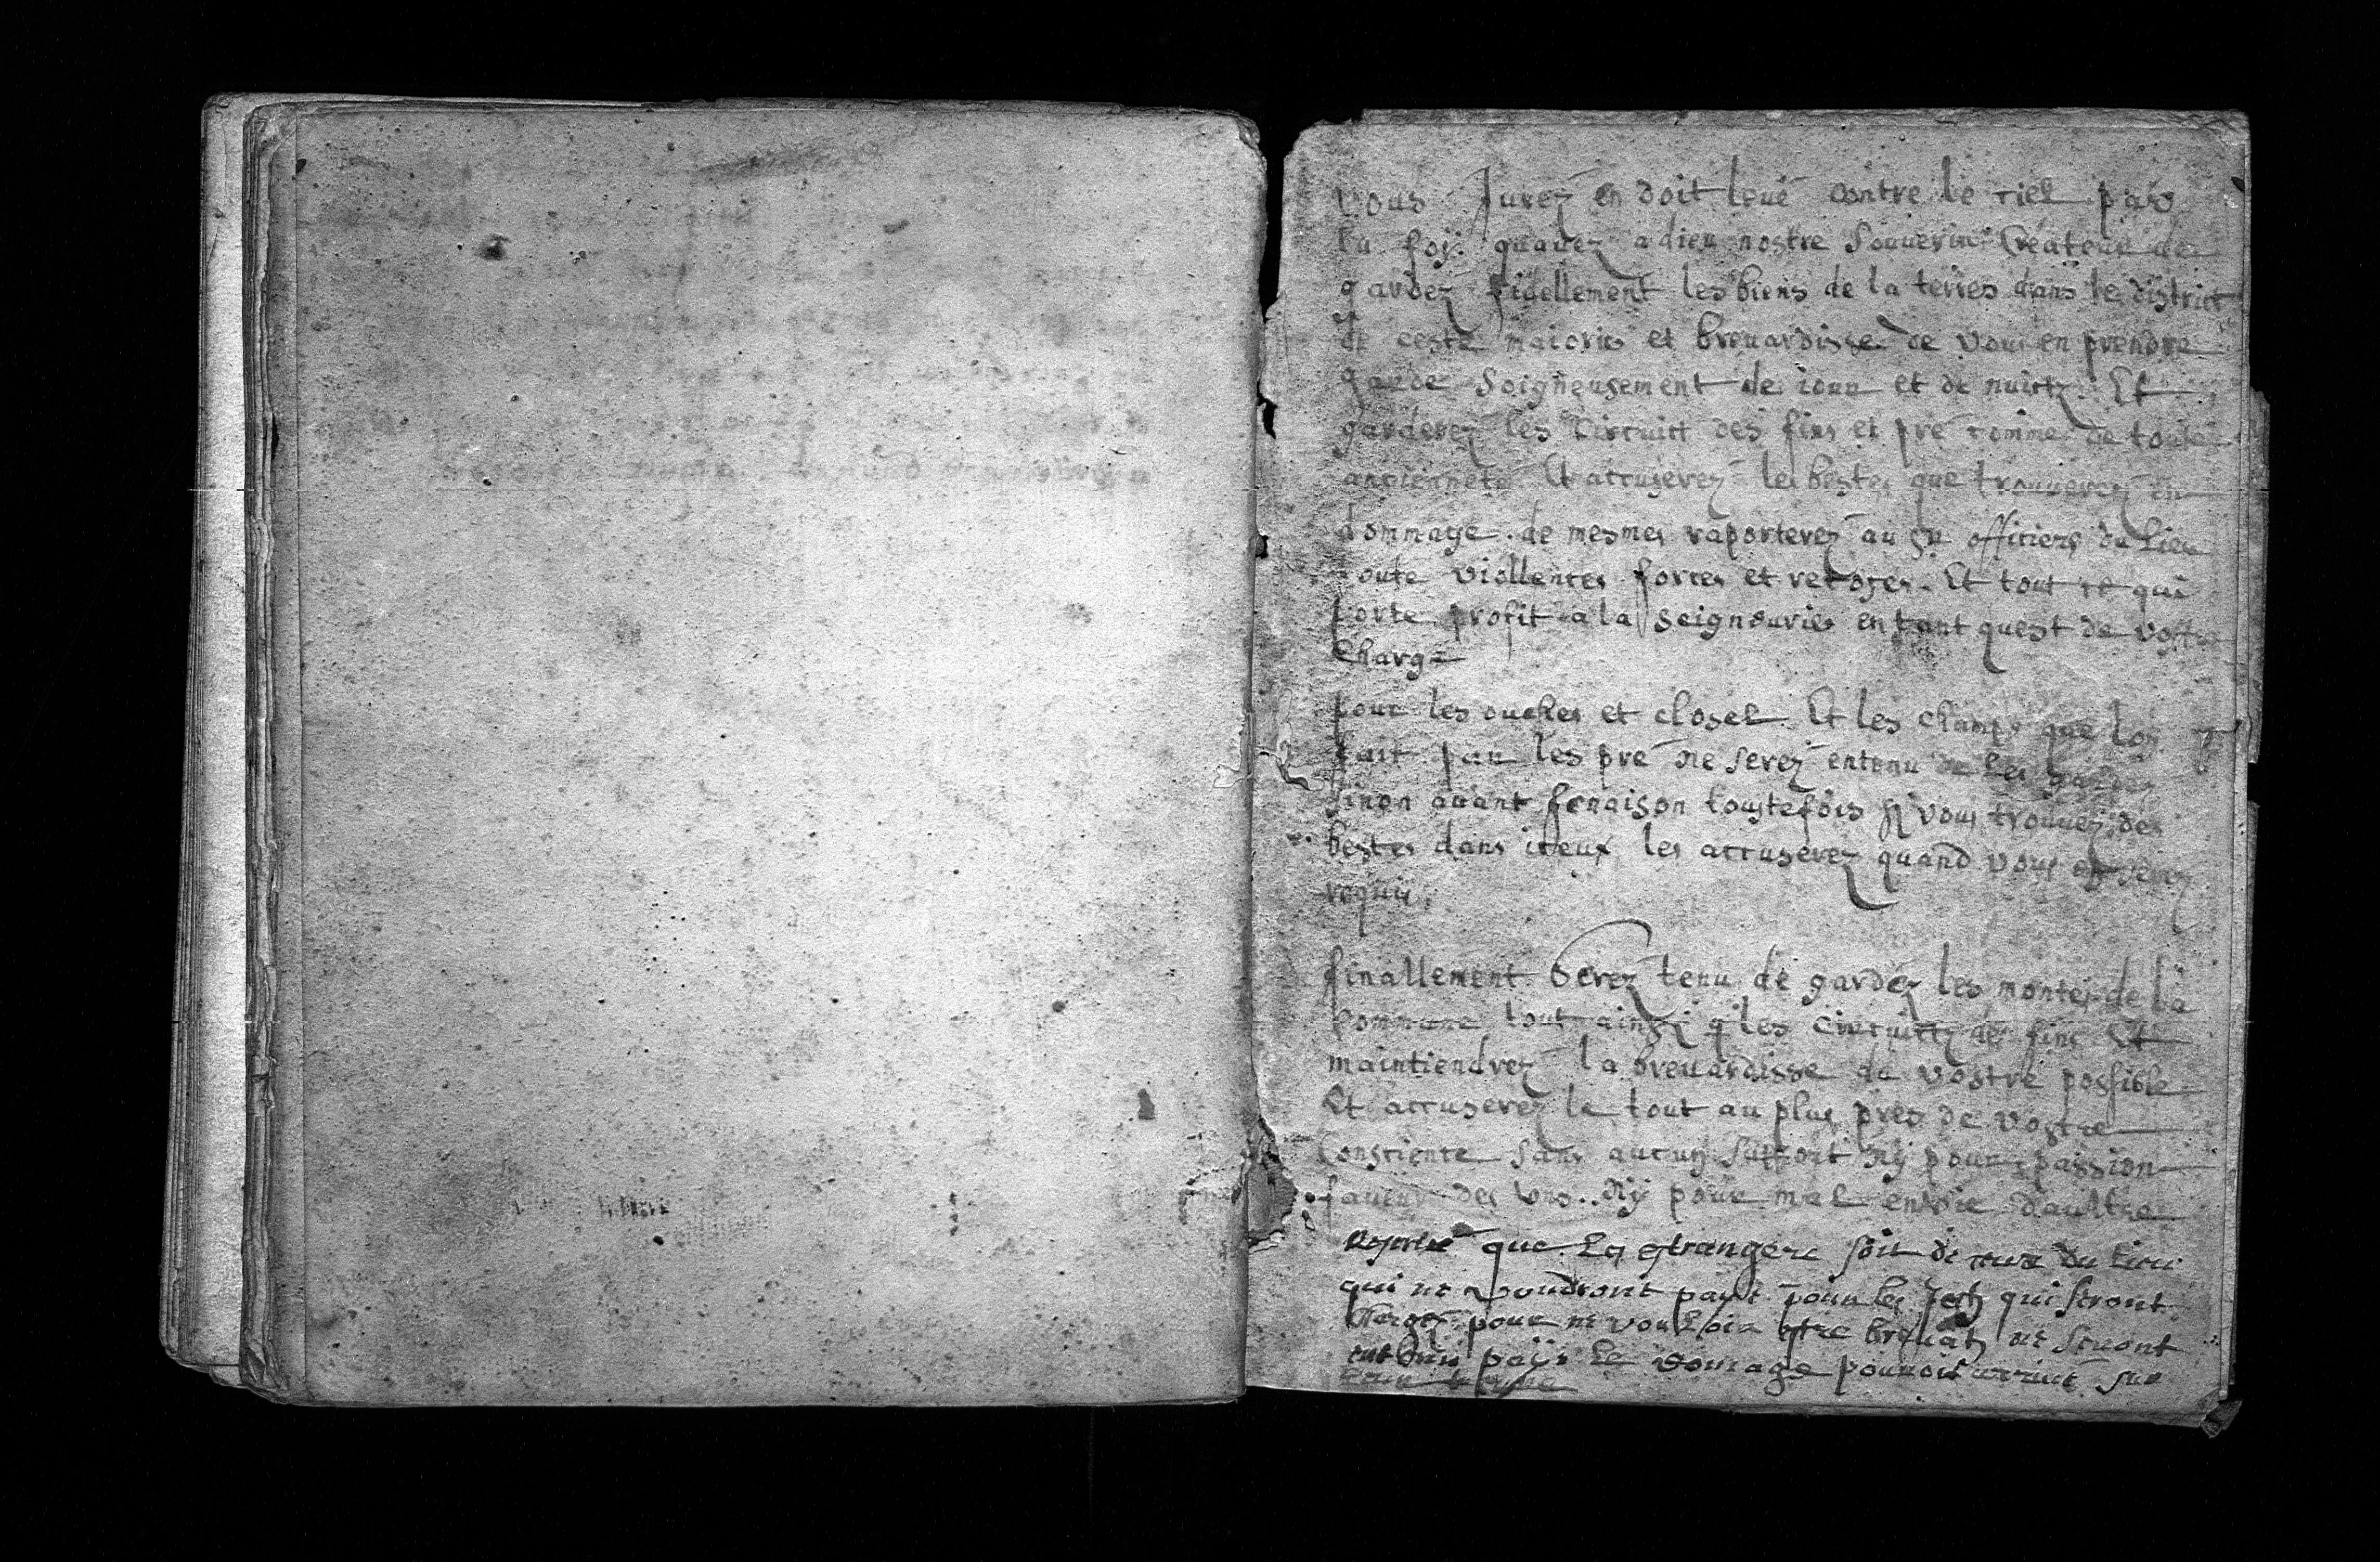 vous Jurez en doit leué contre le ciel par
la foÿ quauez a dieu nostre Souuerin Createur de
gardez fidellement les biens de la terres dans le district
de ceste maiories et breuardisse de vous en prendre
garde Soigneusement de iour et de nuictz. Et
garderez les Circuict des fins et pré comme de toute
ancienneté Et accuserez les bestes que trouuerez en
dommage. de mesmes raporterez au Sr officiers du lieu
toute viollences forces et . Et tout ce qui
porte profit a la Seigneuries en tant quest de vostre
Charge
pour les ouches et closel Et les champs que lon
fait par les pré ne serez entenu de les gardez
sinon auant fenaison toustefois sÿ vous trouuez des
bestes dans iceux les accuserez quand vous en serez
requis
finallement Serez tenu de gardez les montes de la
commune tout ainsi q les Circuictz de fins Et
maintiendrez la breuardisse du vostre possible
Et accuserez le tout au plus pres de vostre
Conscience sans aucun suport nÿ pour passion
faueur des vns. nÿ pour mal enuie daultre
que les estrangers soit de ceux du lieu
qui ne voudront payé pour les qui seront
pour ne vouloir estre ne seront
payé le domage pouuoit arriué sur